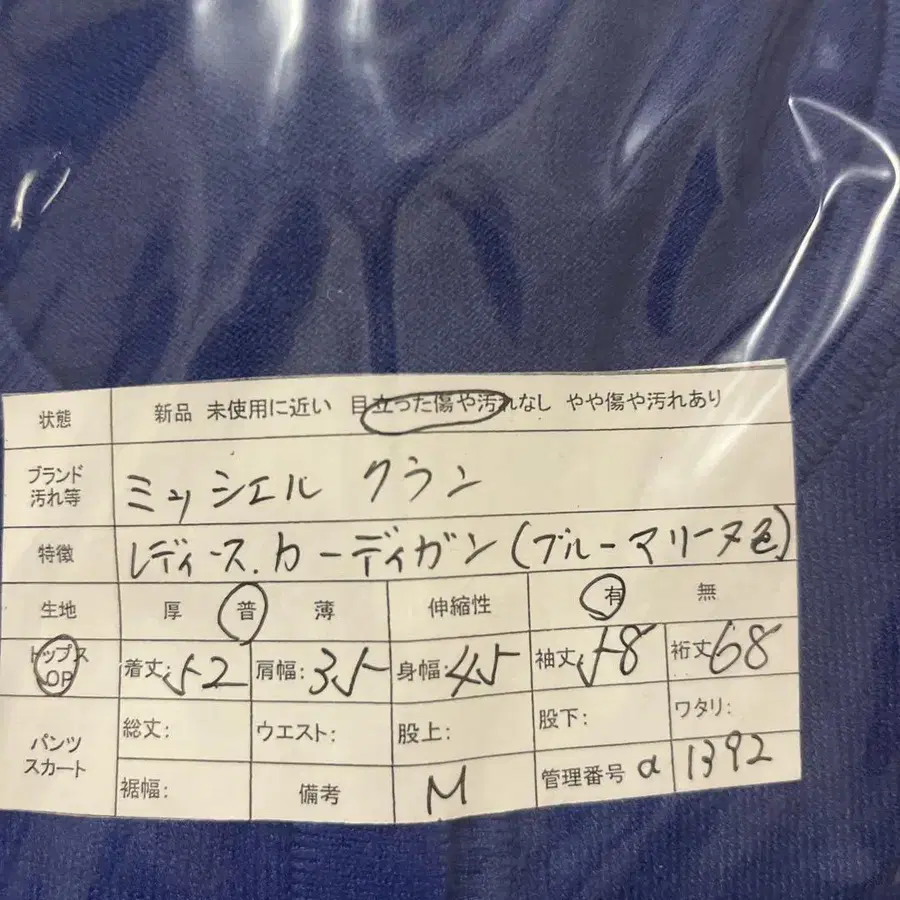 状態 新品 未使用に近い 目立った傷や汚れなし やや傷や汚れあり
ブランド
汚れ等 ミッシェル クラン
特徴 レディース.カーディガン(ブルーマリーヌ色)
生地 厚 普 薄 伸縮性 有 無
トップス
OP 着丈:52 肩幅:35 身幅:45 袖丈:58 裄丈68
パンツ
スカート 総丈: ウエスト: 股上: 股下: ワタリ:
裾幅: 備考 M 管理番号 α 1392